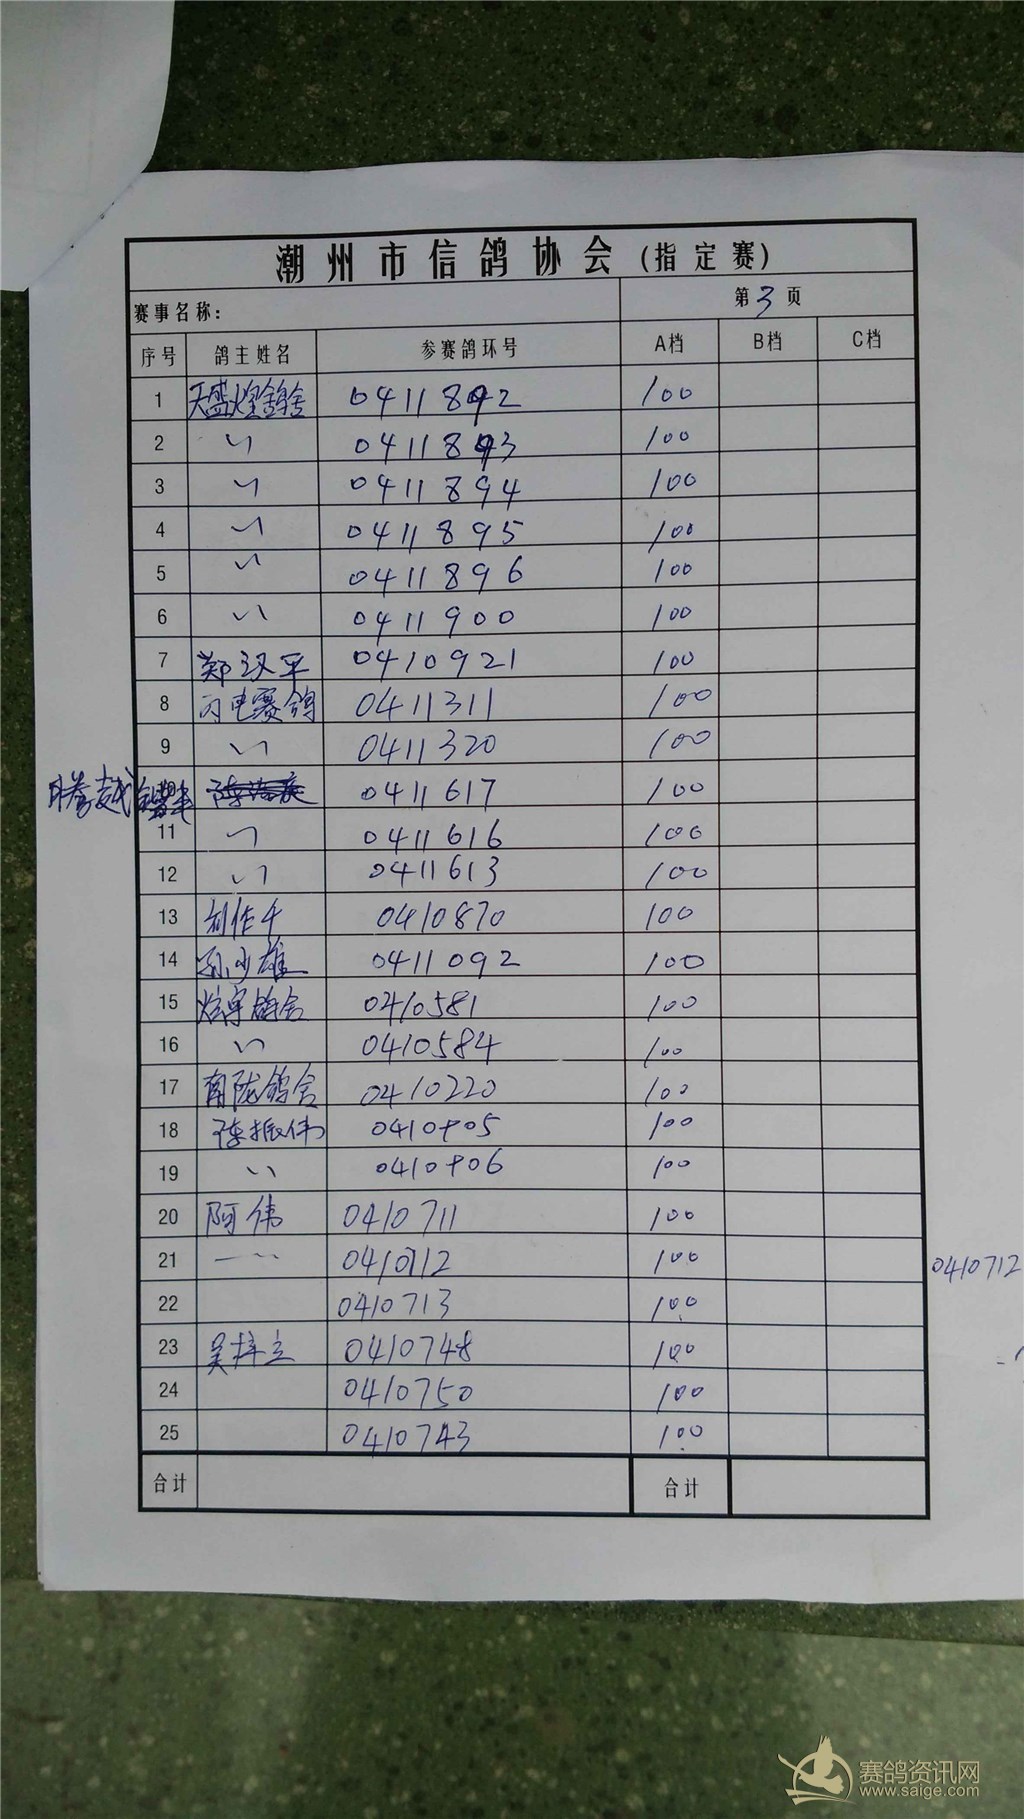 潮州市信鸽协会(指定赛)
赛事名称: 第3页
序号 鸽主姓名 参赛鸽环号 A档 B档 C档
1 天盛煌锦舍 0411892 100
2 〃 0411893 100
3 〃 0411894 100
4 〃 0411895 100
5 〃 0411896 100
6 〃 0411900 100
7 郑汉平 0410921 100
8 闪电赛鸽 0411311 100
9 〃 0411320 100
腾越 0411617 100
11 〃 0411616 100
12 〃 0411613 100
13 刘作千 0410870 100
14 孙少雄 0411092 100
15 炫宇鸽舍 0410581 100
16 〃 0410584 100
17 南陇鸽舍 0410220 100
18 陈振伟 0410805 100
19 〃 0410806 100
20 阿伟 0410711 100
21 〃 0410712 100 0410712
22 0410713 100
23 吴梓立 0410748 100
24 0410750 100
25 0410743 100
合计 合计
赛鸽资讯网
www.saige.com